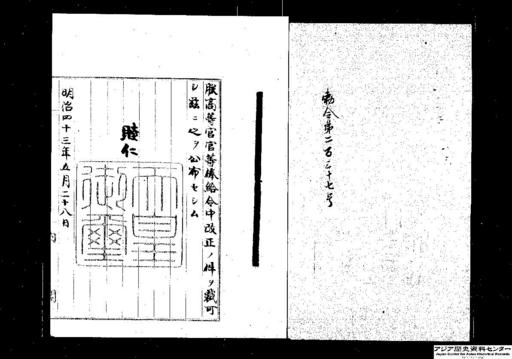 勅令第二百三十七号
朕高等官官等俸給令中改正ノ件ヲ裁可
シ茲ニ之ヲ公布セシム
睦仁
天皇御璽
明治四十三年五月二十八日
内閣
アジア歴史資料センター
Japan Center for Asian Historical Records